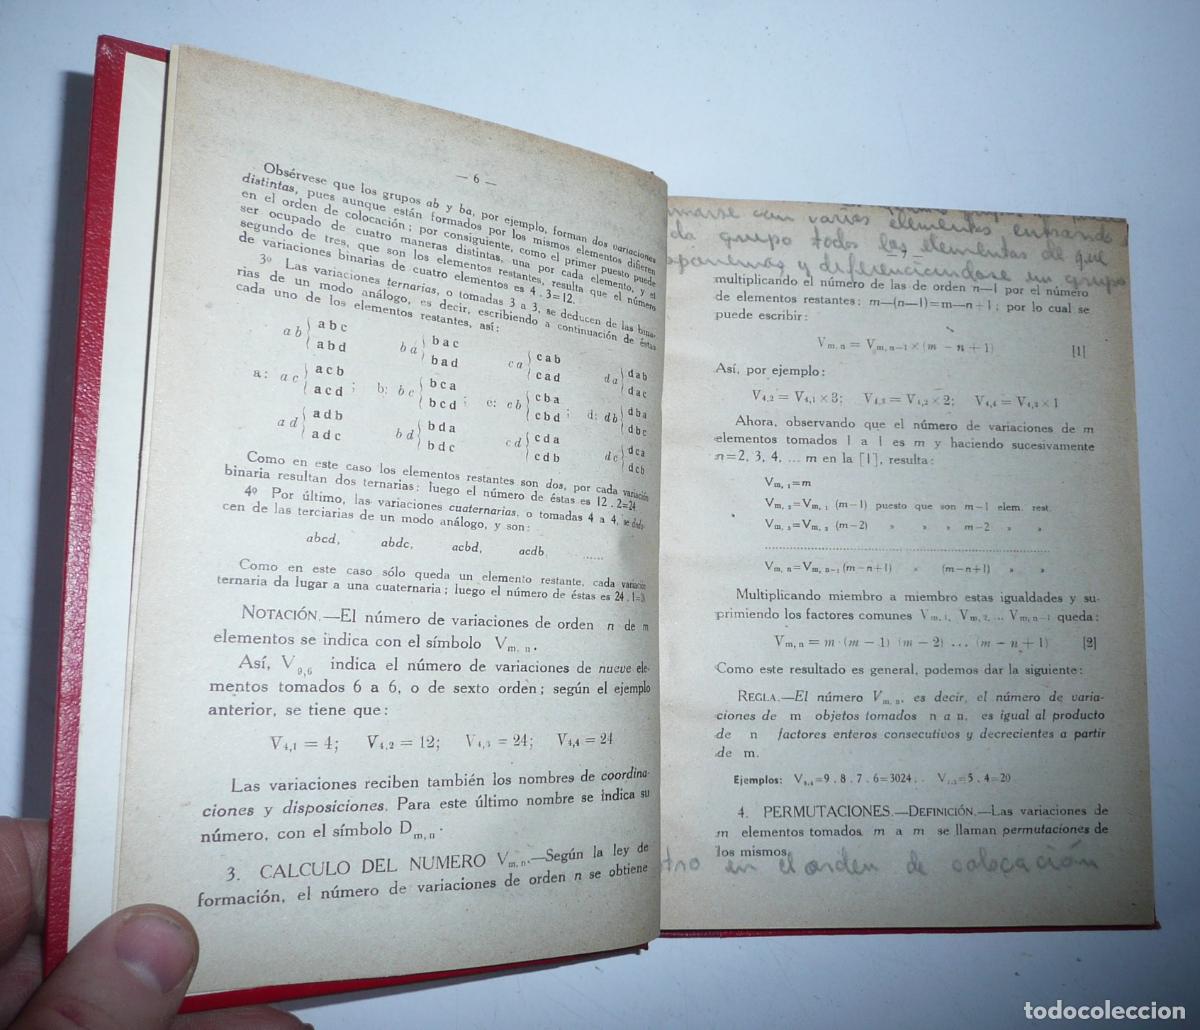 — 6 —
Obsérvese que los grupos ab y ba, por ejemplo, forman dos variaciones
distintas, pues aunque están formados por los mismos elementos difieren
en el orden de colocación; por consiguiente, como el primer puesto puede
ser ocupado de cuatro maneras distintas, una por cada elemento, y el
segundo de tres, que son los elementos restantes, resulta que el número
de variaciones binarias de cuatro elementos es 4 . 3=12.
3º Las variaciones ternarias, o tomadas 3 a 3, se deducen de las bina-
rias de un modo análogo, es decir, escribiendo a continuación de éstas
cada uno de los elementos restantes, así:
a b { a b c   b a { b a c   c a { c a b   d a { d a b
a b d   b a d   c a d   d a c
a: a c { a c b ; b: b c { b c a ; c: c b { c b a ; d: d b { d b a
a c d   b c d   c b d   d b c
a d { a d b   b d { b d a   c d { c d a   d c { d c a
a d c   b d c   c d b   d c b
Como en este caso los elementos restantes son dos, por cada variación
binaria resultan dos ternarias; luego el número de éstas es 12 . 2=24
4º Por último, las variaciones cuaternarias, o tomadas 4 a 4, se dedu-
cen de las terciarias de un modo análogo, y son:
abcd, abdc, acbd, acdb, ......
Como en este caso sólo queda un elemento restante, cada variación
ternaria da lugar a una cuaternaria; luego el número de éstas es 24 . 1=24
NOTACIÓN.—El número de variaciones de orden n de m
elementos se indica con el símbolo Vm, n.
Así, V9,6 indica el número de variaciones de nueve ele-
mentos tomados 6 a 6, o de sexto orden; según el ejemplo
anterior, se tiene que:
V4,1 = 4; V4,2 = 12; V4,3 = 24; V4,4 = 24
Las variaciones reciben también los nombres de coordina-
ciones y disposiciones. Para este último nombre se indica su
número, con el símbolo Dm, n.
3. CALCULO DEL NUMERO Vm, n.—Según la ley de
formación, el número de variaciones de orden n se obtiene
marse con varios elementos entrando
da grupo todos los elementos de que
— 7 —
sponemos y diferenciandose un grupo
multiplicando el número de las de orden n—1 por el número
de elementos restantes: m—(n—1)=m—n+1; por lo cual se
puede escribir:
Vm, n = Vm, n-1 × (m − n + 1) [1]
Así, por ejemplo:
V4,2 = V4,1 × 3; V4,3 = V4,2 × 2; V4,4 = V4,3 × 1
Ahora, observando que el número de variaciones de m
elementos tomados 1 a 1 es m y haciendo sucesivamente
n=2, 3, 4, ... m en la [1], resulta:
Vm, 1=m
Vm, 2=Vm, 1 (m−1) puesto que son m−1 elem. rest.
Vm, 3=Vm, 2 (m−2) » » » m−2 » »
Vm, n=Vm, n-1 (m−n+1) » (m−n+1) » »
Multiplicando miembro a miembro estas igualdades y su-
primiendo los factores comunes Vm, 1, Vm, 2, ... Vm, n-1 queda:
Vm, n = m (m − 1) (m − 2) ... (m − n + 1) [2]
Como este resultado es general, podemos dar la siguiente:
REGLA.—El número Vm, n, es decir, el número de varia-
ciones de m objetos tomados n a n, es igual al producto
de n factores enteros consecutivos y decrecientes a partir
de m.
Ejemplos: V9,4=9 . 8 . 7 . 6=3024. V5,2=5 . 4=20
4. PERMUTACIONES.—DEFINICIÓN.—Las variaciones de
m elementos tomados m a m se llaman permutaciones de
los mismos.
tro en el orden de colocación
todocoleccion